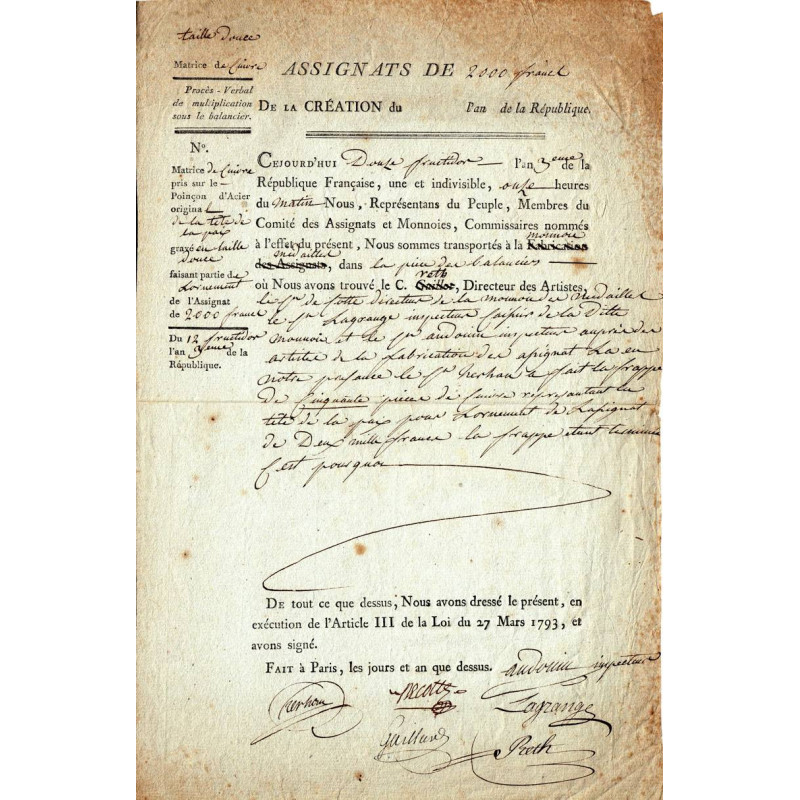 taille douce
Matrice de Cuivre
Procès-Verbal
de multiplication
sous le balancier.
N°.
Matrice de Cuivre
pris sur le
Poinçon d'Acier
original
de la tête de
la paix
gravé en taille
douce
faisant partie de
Lornement
de l'Assignat
de 2000 francs
Du 12 fructidor
l'an 3eme de la
République.
ASSIGNATS DE 2000 francs
DE LA CRÉATION du l'an de la République.
CEJOURD'HUI Douze fructidor l'an 3eme de la
République Française, une et indivisible, onze heures
du matin Nous, Représentans du Peuple, Membres du
Comité des Assignats et Monnoies, Commissaires nommés
à l'effet du présent, Nous sommes transportés à la Fabrication monnoie
des Assignats medailles, dans la piece des balanciers
où Nous avons trouvé le C. reth, Directeur des Artistes,
le Sr de cotte directeur de la monnoie des medailles
le Sr Lagrange inspecteur de la Ditte
monnoie et le Sr audouin inspecteur auprès des
artistes de la fabrication des assignat La en
notre presance le Sr herhan a fait la frappe
de Cinquante piece de Cuivre représantant la
tête de la paix pour Lornement de Lassignat
de Deux mille francs la frappe étant terminée
C'est pourquoi
DE tout ce que dessus, Nous avons dressé le présent, en
exécution de l'Article III de la Loi du 27 Mars 1793, et
avons signé.
FAIT à Paris, les jours et an que dessus. audouin inspecteur
herhan Decotte Lagrange
Gaillard Reth